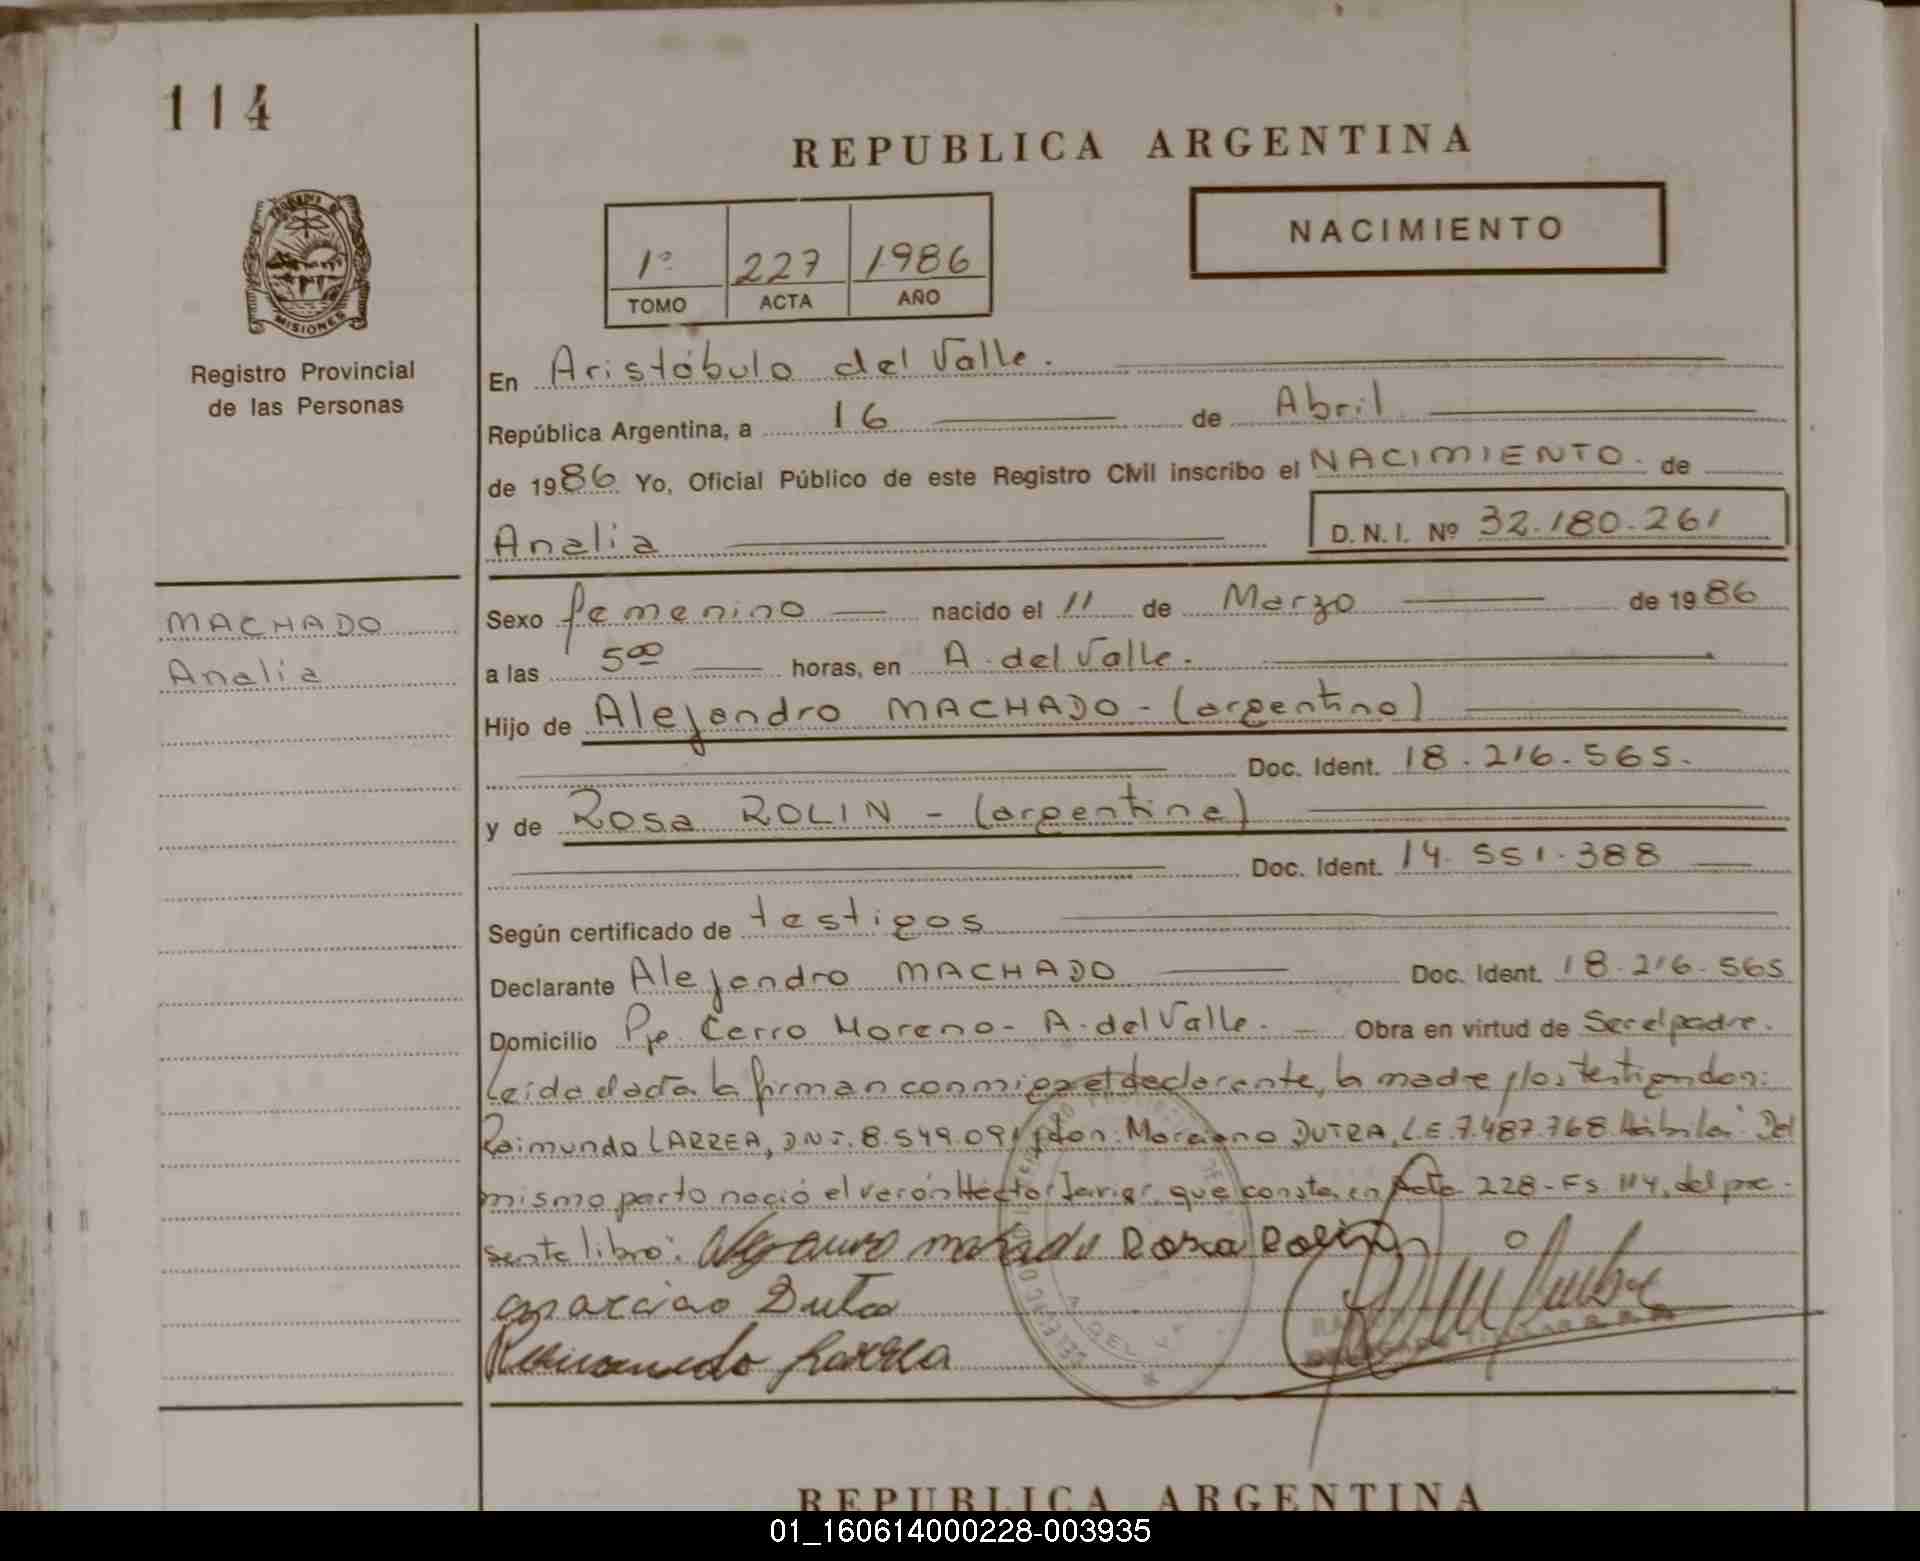 114
REPUBLICA ARGENTINA
NACIMIENTO
1º 227 1986
TOMO ACTA AÑO
MISIONES
Registro Provincial
de las Personas
En Aristóbulo del Valle.
República Argentina, a 16 de Abril
de 1986 Yo, Oficial Público de este Registro Civil inscribo el NACIMIENTO. de
Analia D.N.I. Nº 32.180.261
MACHADO
Analia
Sexo femenino nacido el 11 de Marzo de 1986
a las 5 00 horas, en A. del Valle.
Hijo de Alejandro MACHADO - (argentino)
Doc. Ident. 18.216.565.
y de Rosa ROLIN - (argentina)
Doc. Ident. 14.551.388
Según certificado de testigos
Declarante Alejandro MACHADO Doc. Ident. 18.216.565
Domicilio Pje. Cerro Moreno - A. del Valle. - Obra en virtud de Ser el padre.
Leída el acta la firman conmigo el declarante, la madre y los testigos don:
Raimundo LARREA, DNI. 8.549.091 y don: Marciano DUTRA, L.E. 7.487.768 Hábiles. Del
mismo parto nació el varón Héctor Javier que consta en Acta 228-Fs. 114, del pre-
sente libro. Rosa Rolin
Marciano Dutra
Raimundo Larrea
REPUBLICA ARGENTINA
01_160614000228-003935